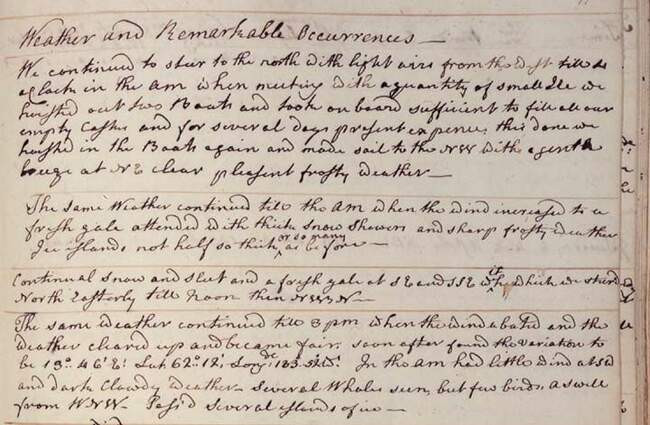 Weather and Remarkable Occurrences —
We continued to steer to the north with light airs from the West till 4
oClock in the am when meeting with a quantity of small Ice we
hoisted out two Boats and took on board sufficient to fill all our
empty Casks and for several days present expence, this done we
hoisted in the Boats again and made sail to the NW with a gentle
breeze at NE clear pleasent frosty weather —
The same Weather continued till the AM when the wind increased to a
fresh gale attended with thick snow showers and sharp frosty weather
Ice islands not half so thick or so many as before —
Continual snow and sleet and a fresh gale at SE and SSE with which we steerd
North Easterly till Noon then
The same weather continued till 3 pm when the wind abated and the
weather cleared up and became fair. soon after found the variation to
be 13° 46' E: Lat 62° 12, Long de 123 In the am had little wind at
and dark Cloudy weather. Several Whales seen, but few birds, a swell
from WNW. Pass'd several islands of ice —